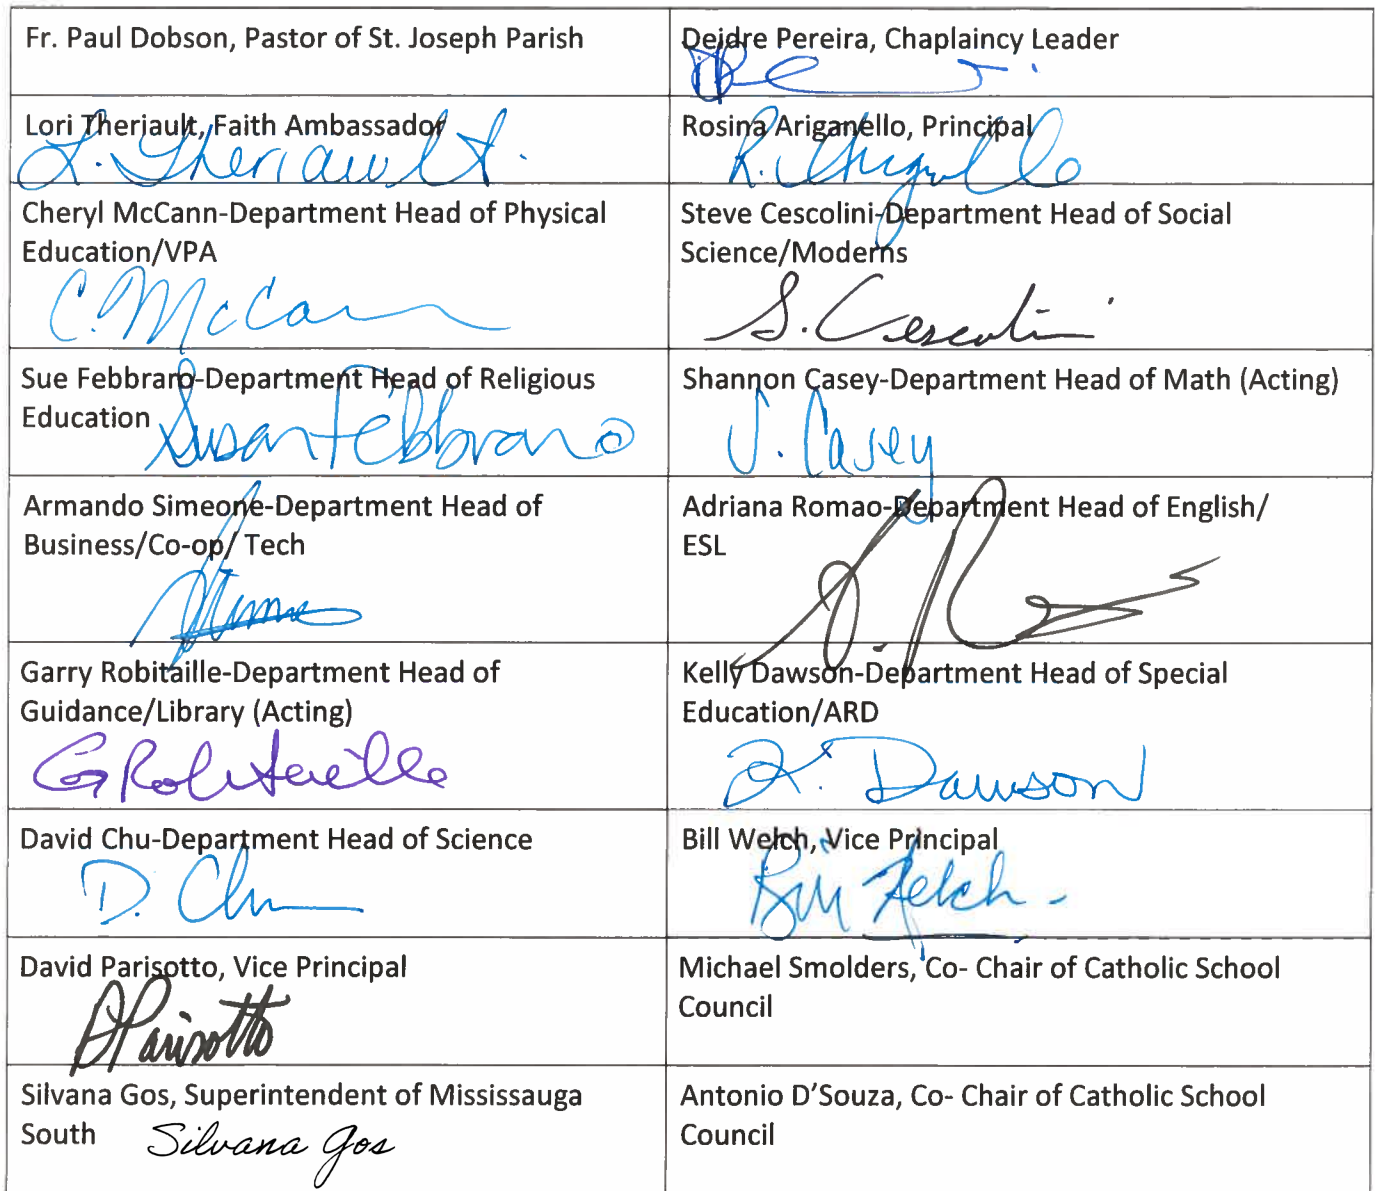 Fr. Paul Dobson, Pastor of St. Joseph Parish
Deidre Pereira, Chaplaincy Leader
Lori Theriault, Faith Ambassador
L. Theriault.
Rosina Ariganello, Principal
Cheryl McCann-Department Head of Physical
Education/VPA
C. McCann
Steve Cescolini-Department Head of Social
Science/Moderns
S. Cescolini
Sue Febbraro-Department Head of Religious
Education
Susan Febbraro
Shannon Casey-Department Head of Math (Acting)
S. Casey
Armando Simeone-Department Head of
Business/Co-op/ Tech
Adriana Romao-Department Head of English/
ESL
Garry Robitaille-Department Head of
Guidance/Library (Acting)
G Robitaille
Kelly Dawson-Department Head of Special
Education/ARD
K. Dawson
David Chu-Department Head of Science
D. Chu
Bill Welch, Vice Principal
Bill Welch
David Parisotto, Vice Principal
D Parisotto
Michael Smolders, Co- Chair of Catholic School
Council
Silvana Gos, Superintendent of Mississauga
South
Silvana Gos
Antonio D'Souza, Co- Chair of Catholic School
Council